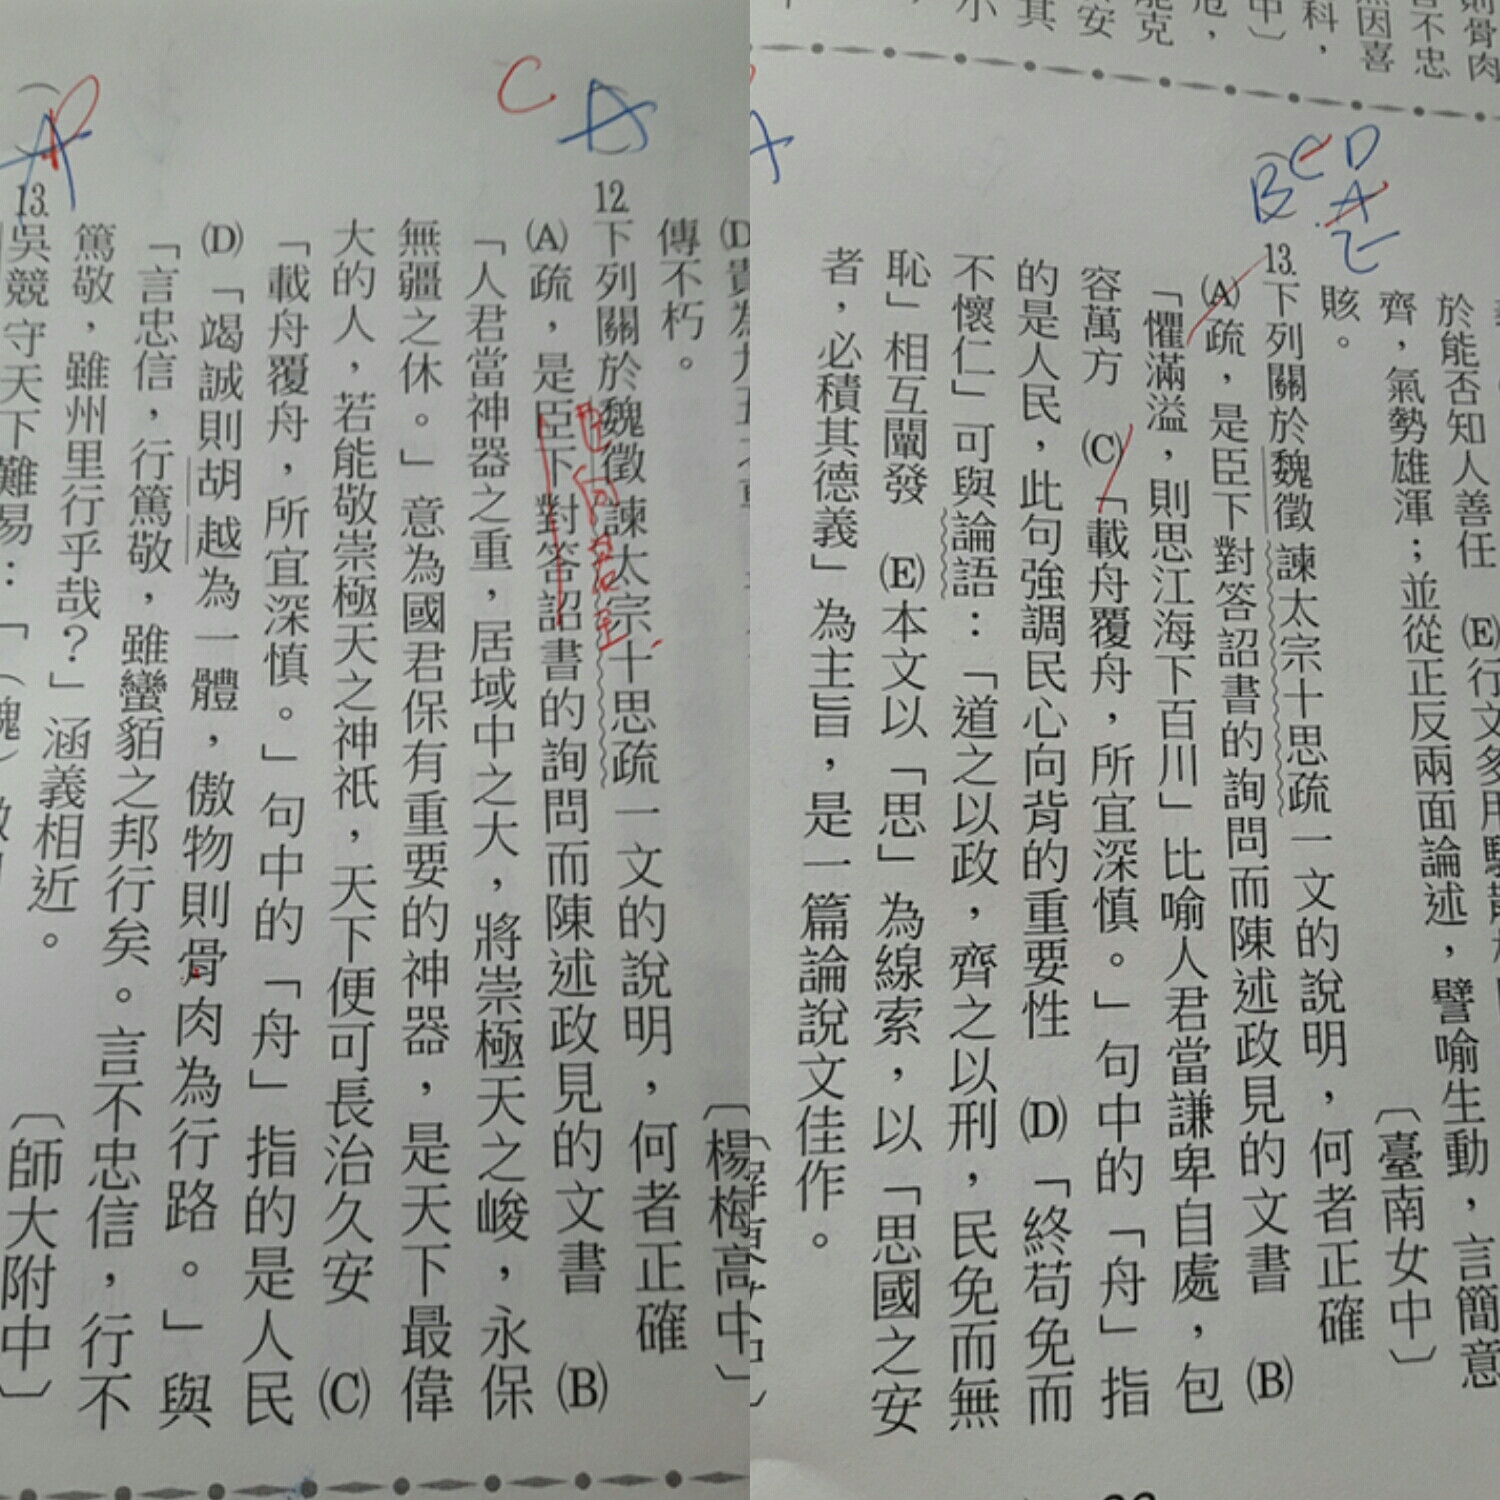 傳不朽。
〔楊梅高中〕
12.下列關於魏徵諫太宗十思疏一文的說明，何者正確
(A)疏，是臣下對答詔書的詢問而陳述政見的文書　(B)
「人君當神器之重，居域中之大，將崇極天之峻，永保
無疆之休。」意為國君保有重要的神器，是天下最偉
大的人，若能敬崇極天之神祇，天下便可長治久安　(C)
「載舟覆舟，所宜深慎。」句中的「舟」指的是人民
(D)「竭誠則胡越為一體，傲物則骨肉為行路。」與
「言忠信，行篤敬，雖蠻貊之邦行矣。言不忠信，行不
篤敬，雖州里行乎哉？」涵義相近。
〔師大附中〕
13.吳競守天下難易：「（魏）
C
A
臣向君主
則骨肉
不忠
因喜
科，
於能否知人善任　(E)行文多用
齊，氣勢雄渾；並從正反兩面論述，譬喻生動，言簡意
賅。
〔臺南女中〕
B C D
A
E
13.下列關於魏徵諫太宗十思疏一文的說明，何者正確
(A)疏，是臣下對答詔書的詢問而陳述政見的文書　(B)
「懼滿溢，則思江海下百川」比喻人君當謙卑自處，包
容萬方　(C)「載舟覆舟，所宜深慎。」句中的「舟」指
的是人民，此句強調民心向背的重要性　(D)「終苟免而
不懷仁」可與論語：「道之以政，齊之以刑，民免而無
恥」相互闡發　(E)本文以「思」為線索，以「思國之安
者，必積其德義」為主旨，是一篇論說文佳作。